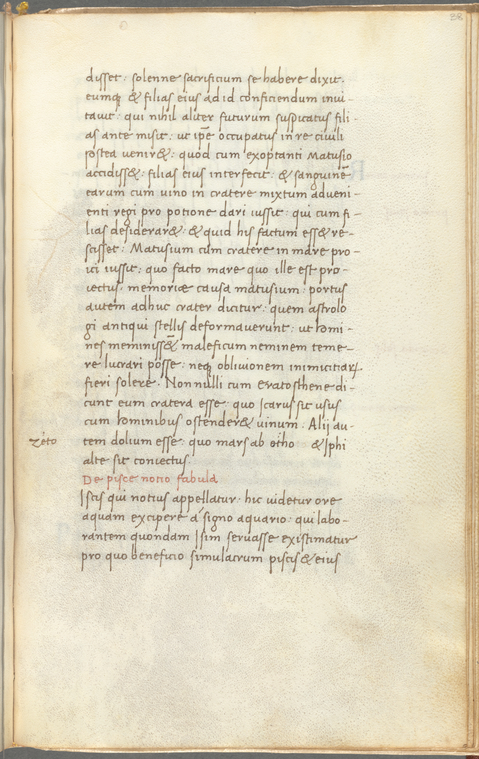 38
disset: solenne sacrificium se habere dixit.
eumq; & filias eius ad id conficiendum inui-
tauit: qui nihil aliter futurum suspicatus fili-
as ante misit: ut ipe occupatus in re ciuili
postea venir&: quod cum exoptanti Matusio
accidiss&: filias eius interfecit: & sanguine
earum cum uino in cratere mixtum adueni-
enti regi pro potione dari iussit: qui cum fi-
lias desiderar&: & quid his factum ess& re-
scisset: Matusium cum cratere in mare pro-
ici iussit: quo facto mare quo ille est pro-
iectus: memoriæ causa matusium: portus
autem adhuc crater dicitur: quem astrolo
gi antiqui stellis deformauerunt: ut homi-
nes meminiss&: maleficum neminem teme-
re lucrari posse: neq; obliuionem inimicitiar
fieri solere. Nonnulli cum Eratosthene di-
cunt eum cratera esse: quo Icarus sit usus
cum hominibus ostender& uinum. Alij au-
tem dolium esse: quo mars ab otho & Iphi
alte sit coniectus.
De pisce notio fabula
Iscis qui notius appellatur: hic uidetur ore
aquam excipere a signo aquario: qui labo-
rantem quondam Isim seruasse existimatur
pro quo beneficio simulacrum piscis & eius